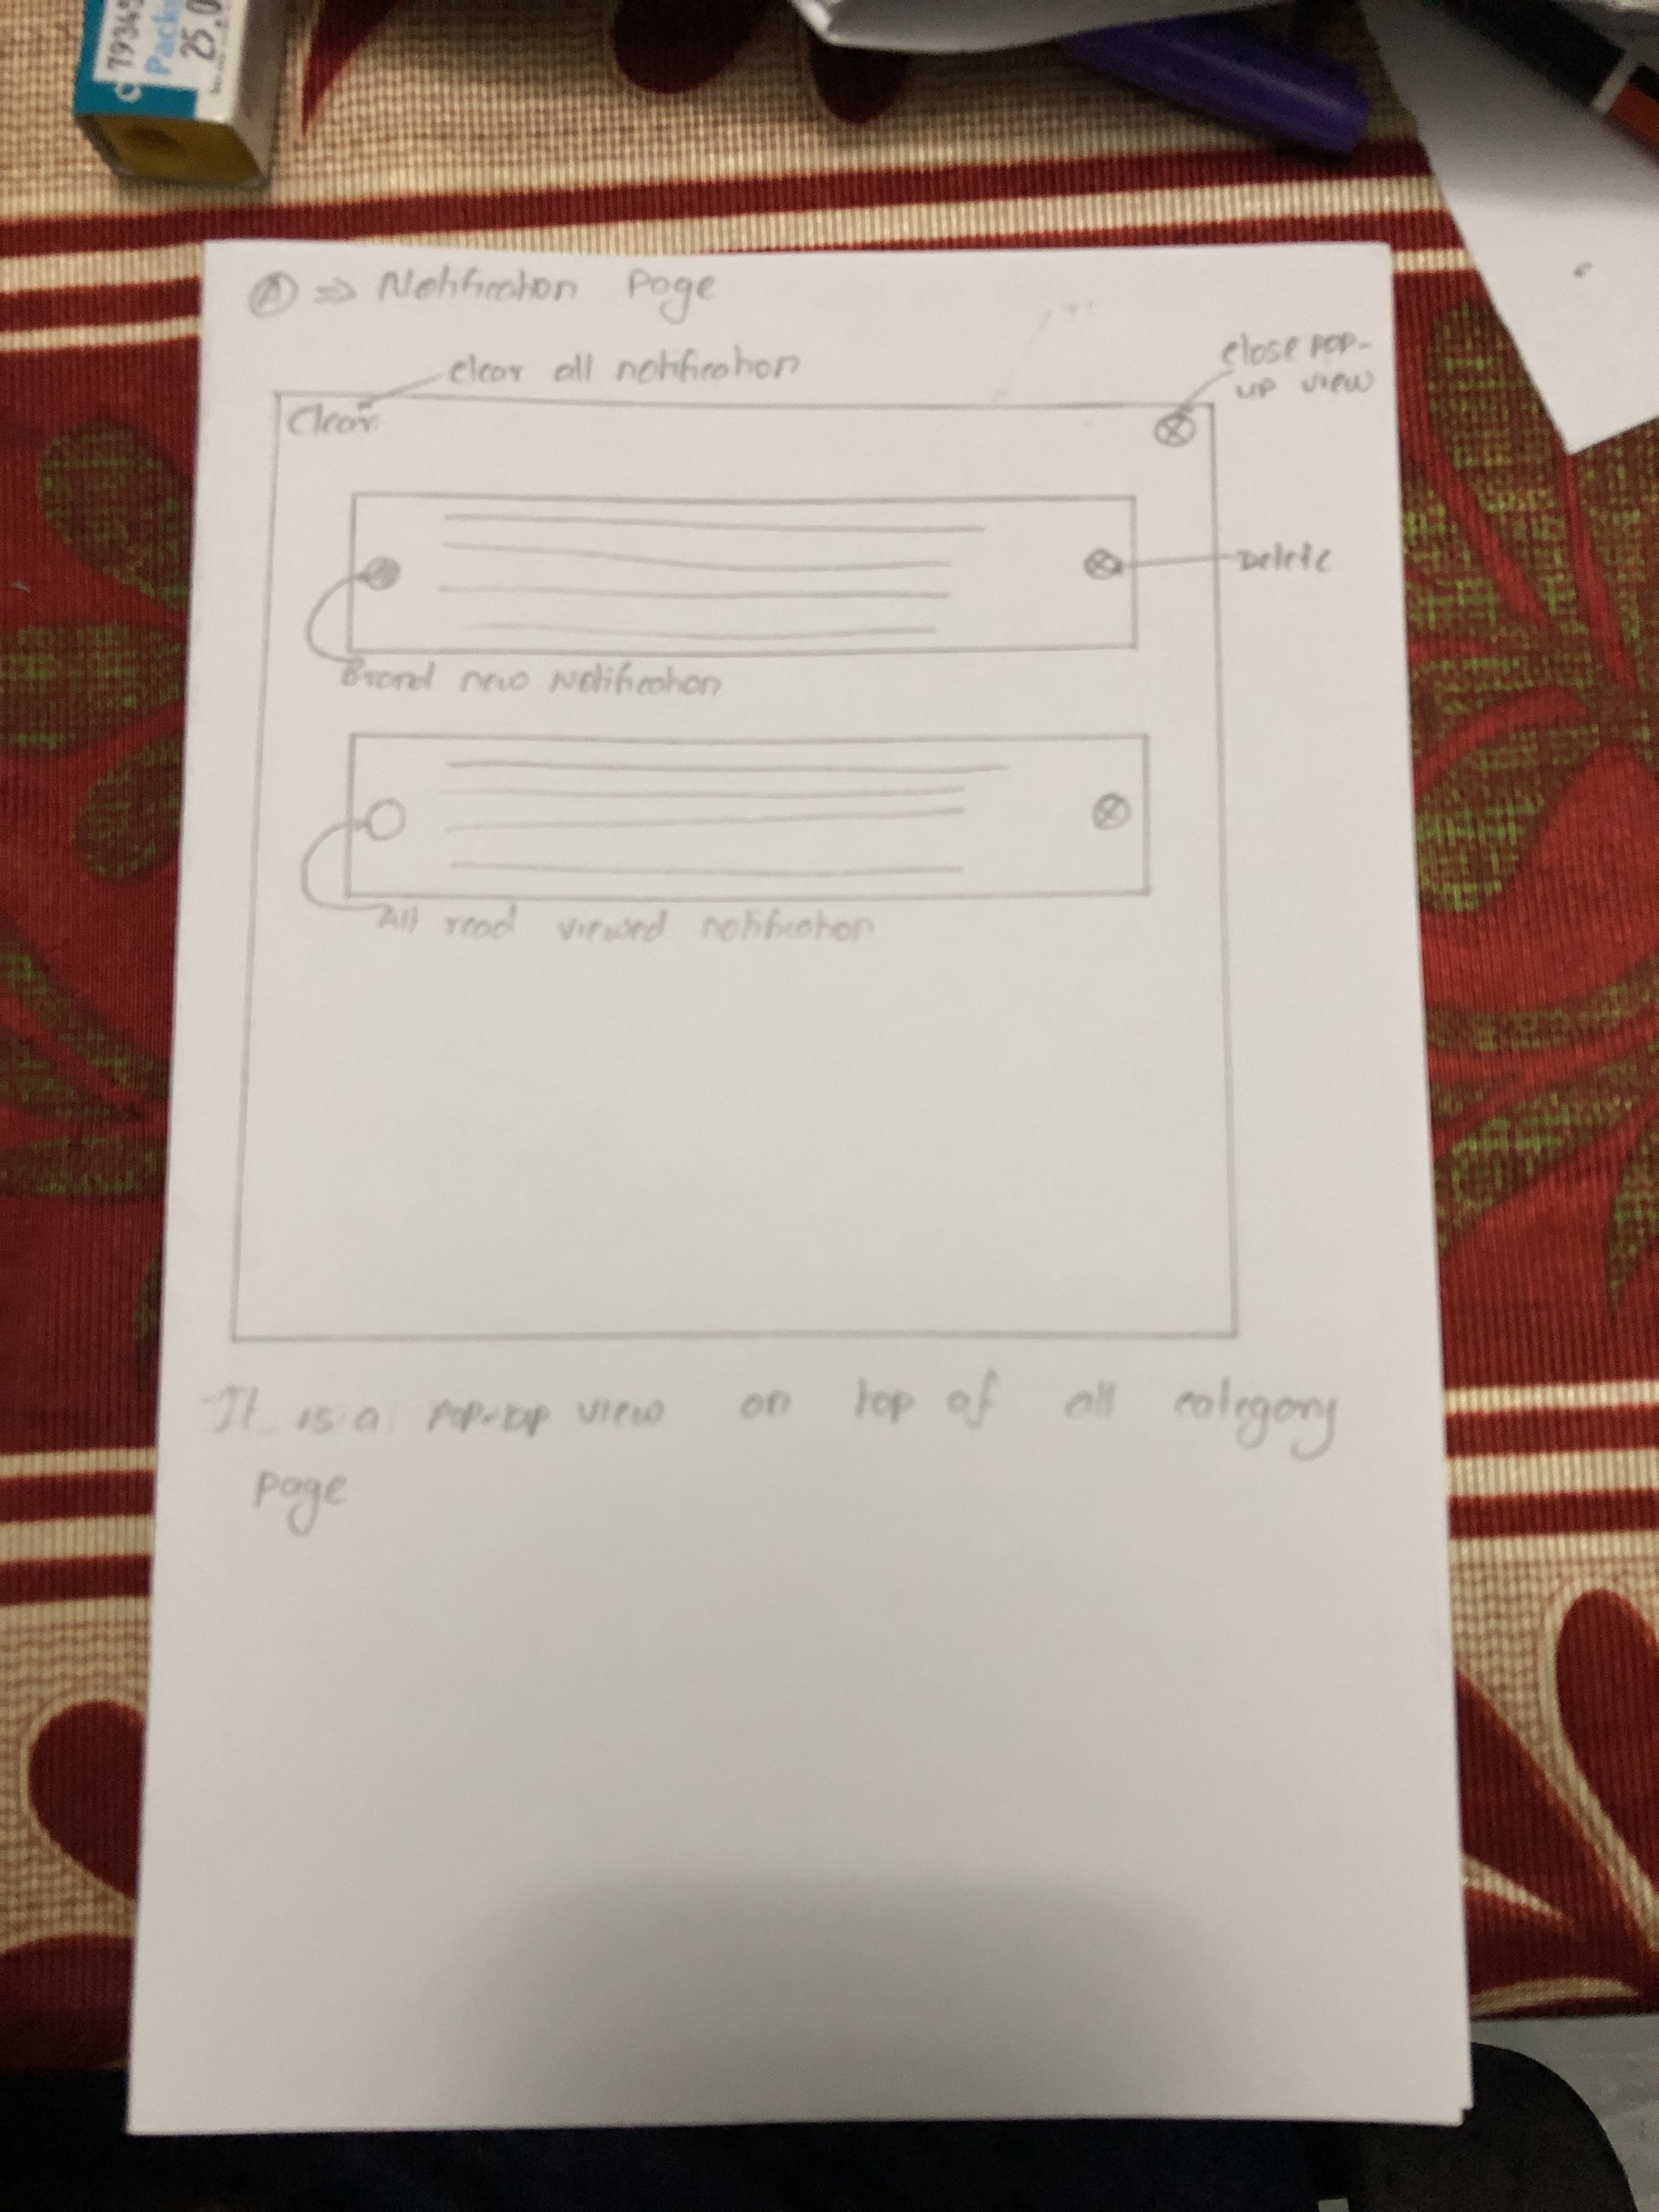 A ⇒ Notification Page
clear all notification
close pop-
up view
Clear
Delete
Brand new Notification
All read viewed notification
It is a pop-up view on top of all category
page
79345
Pack
25.0